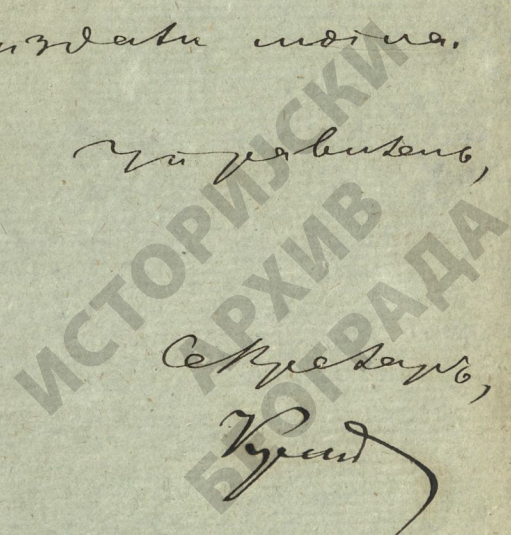 издати могла.
Управитељ,
Секретар,
ИСТОРИЈСКИ
АРХИВ
БЕОГРАДА